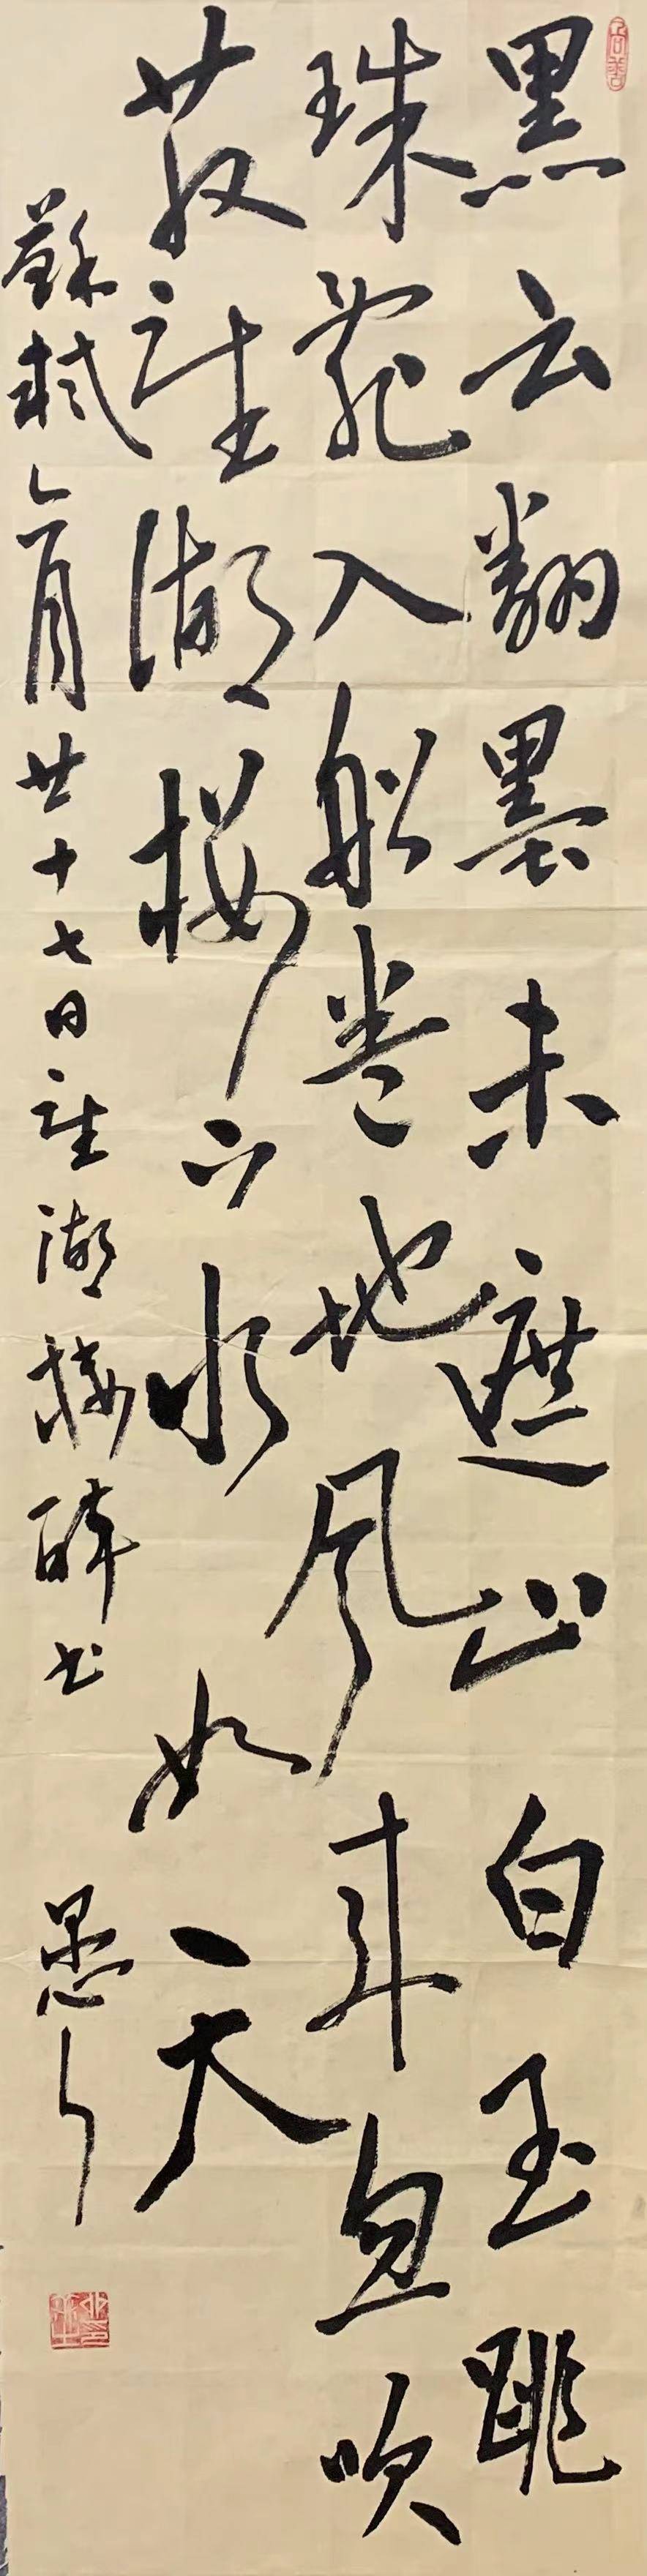 黑云翻墨未遮山白玉跳
珠亂入船卷地风来忽吹
散望湖楼下水如天
蘇軾六月廿十七日望湖楼醉书